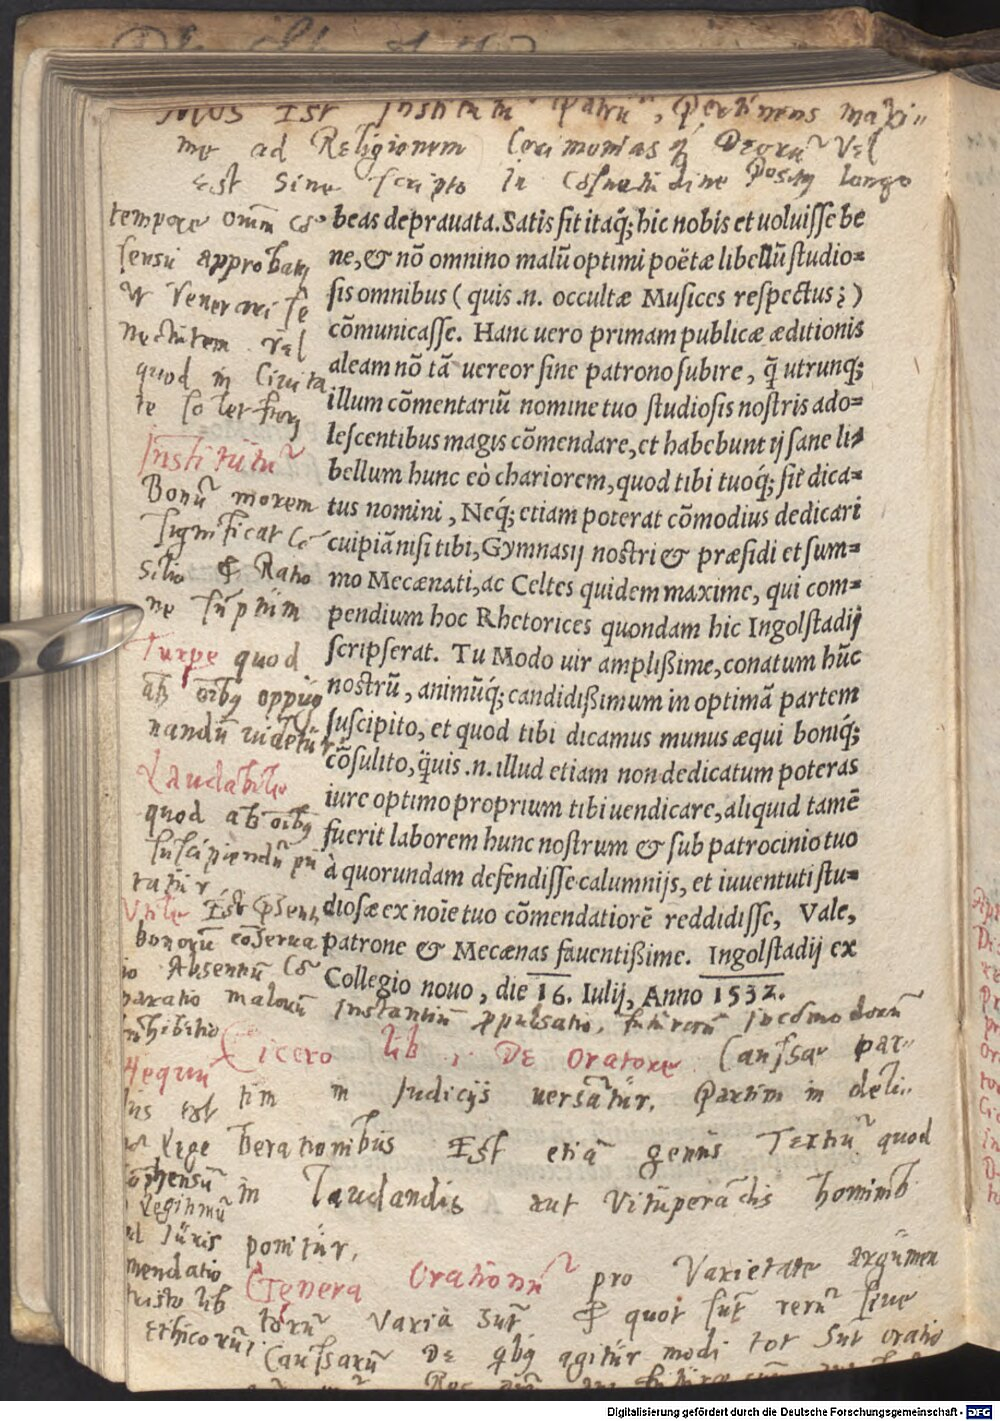 Mos Est Institutū Patrū, Pertinens maxi„
me ad Religionem Cerimonias q́ Deorū Vel
Est Sine scripto In Cosnetudine Positū longo
tempore omniū cō
sensu approbatū
Vt Venerari se
nectutem vel
quod in Civita
te solet fieri
Institutū
Bonū morem
significat Cō
silio & Ratio
ne sūptum
Turpe quod
ab oībꝫ oppug
nandū videtur
Laudabile
quod ab oībꝫ
suscipiendū pu
tatur
Vtile Est Psentiū
bonorū cōserua
io Absentiū Cō
paratio malorū Instantiū ꝓpulsatio, futurorū Incōmodorū
inhibitio
beas deprauata. Satis fit itaq́; hic nobis et uoluisse be
ne, & nō omnino malū optimi poëtæ libellū studio=
sis omnibus ( quis .n. occultæ Musices respectus; )
cōmunicasse. Hanc uero primam publicæ æditionis
aleam nō tā uereor sine patrono subire, q̄ utrunq;
illum cōmentariū nomine tuo studiosis nostris ado=
lescentibus magis cōmendare, et habebunt ij sane li=
bellum hunc eò chariorem, quod tibi tuoq́; sit dica=
tus nomini, Neq́; etiam poterat cōmodius dedicari
cuipiā nisi tibi, Gymnasij nostri & præsidi et sum=
mo Mecænati, ac Celtes quidem maxime, qui com=
pendium hoc Rhetorices quondam hic Ingolstadij
scripserat. Tu Modo uir amplißime, conatum hūc
nostrū, animūq́; candidißimum in optimā partem
suscipito, et quod tibi dicamus munus æqui boniq́;
cōsulito, q̄uis .n. illud etiam non dedicatum poteras
iure optimo proprium tibi uendicare, aliquid tamē
fuerit laborem hunc nostrum & sub patrocinio tuo
à quorundam defendisse calumnijs, et iuuentuti stu=
diosæ ex noīe tuo cōmendatiorē reddidisse, Vale,
patrone & Mecænas fauentißime. Ingolstadij ex
Collegio nouo, die 16. Iulij, Anno 1532.
Cicero lib 1 De Oratore Caussae par„
tim in Judicijs uersātur. Partim in deli„
berationibus Est etiā genus Tertiū quod
in laudandis aut Vituperādis hominibꝫ
ponitur.
Genera Orationū pro Varietate argumen
torū Varia Sūt & quot sūt rerū siue
Caussarū De qbꝫ agitur modi tot Sūt oratio
Aequū
ius est
Lege
Legitimū
Juris
mendatio
lib
Ethicorū
Digitalisierung gefördert durch die Deutsche Forschungsgemeinschaft - DFG